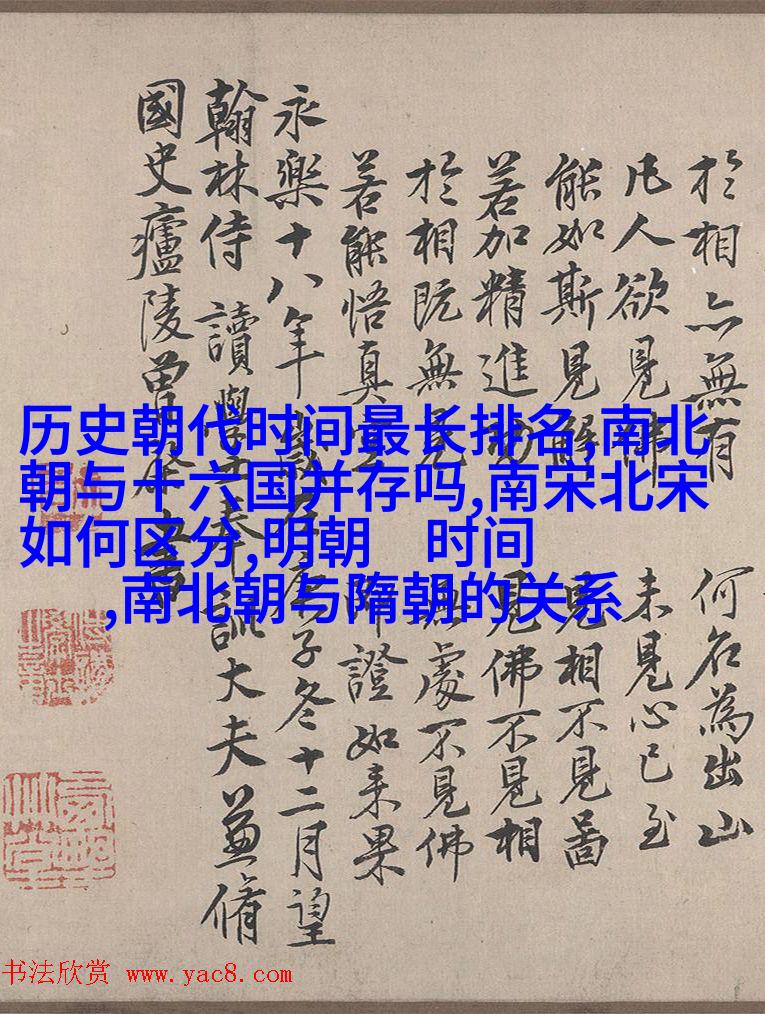 於相亦無有 何名為出山
凡人欲見佛 未見心已至
能如斯見解 見相不見啚
若加精進 見佛不見相
於相既無見 無處不見佛
若能悟真空 即證如来果
永樂十八年歲在庚子冬十二月望
翰林侍讀學士奉訓大夫兼脩
國史廬陵曾棨書
历史朝代时间最长排名,南北
朝与十六国并存吗,南宋北宋
如何区分,明朝 时间
,南北朝与隋朝的关系
书法欣赏 www.yac8.com